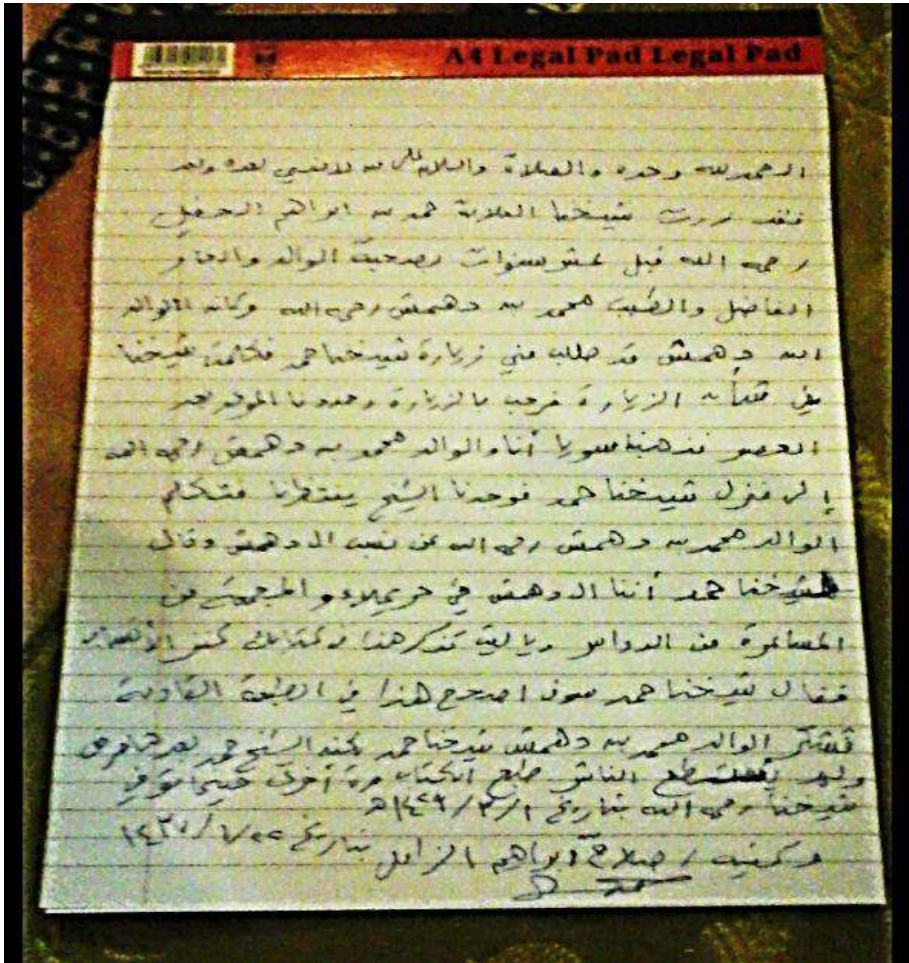 A4 Legal Pad Legal Pad
الحمد لله وحده والصلاة والسلام على من لا نبي بعده وبعد
فقد زرت شيخنا العلامة حمد بن ابراهيم الحقيل
رحمه الله قبل عشر سنوات بصحبة الوالد والعم
الفاضل والطيب محمد بن دهمش رحمه الله وكان الوالد
ابن دهمش قد طلب مني زيارة شيخنا حمد فكلمت شيخنا
في شأن الزيارة فرحب بالزيارة وحددنا الموعد بعد
العصر فذهبنا سويا أنا والوالد محمد بن دهمش رحمه الله
إلى منزل شيخنا حمد فوجدنا الشيخ ينتظرنا فتكلم
الوالد محمد بن دهمش رحمه الله عن نسب الدهمش وقال
شيخنا حمد أننا الدهمش في حريملاء والمجمعة من
المساعرة من الدواسر وياليت تذكر هذا في كتابك كنز الأنساب
فقال شيخنا حمد سوف اصحح هذا في الطبعة القادمة
فشكر الوالد محمد بن دهمش شيخنا حمد لكن الشيخ حمد بعدها مرض
ولم يستطع الناشر طبع الكتاب مرة أخرى حتى توفي
شيخنا رحمه الله بتاريخ ١٤٢٩/٣/١هـ
وكتبه / صلاح ابراهيم الزامل بتاريخ